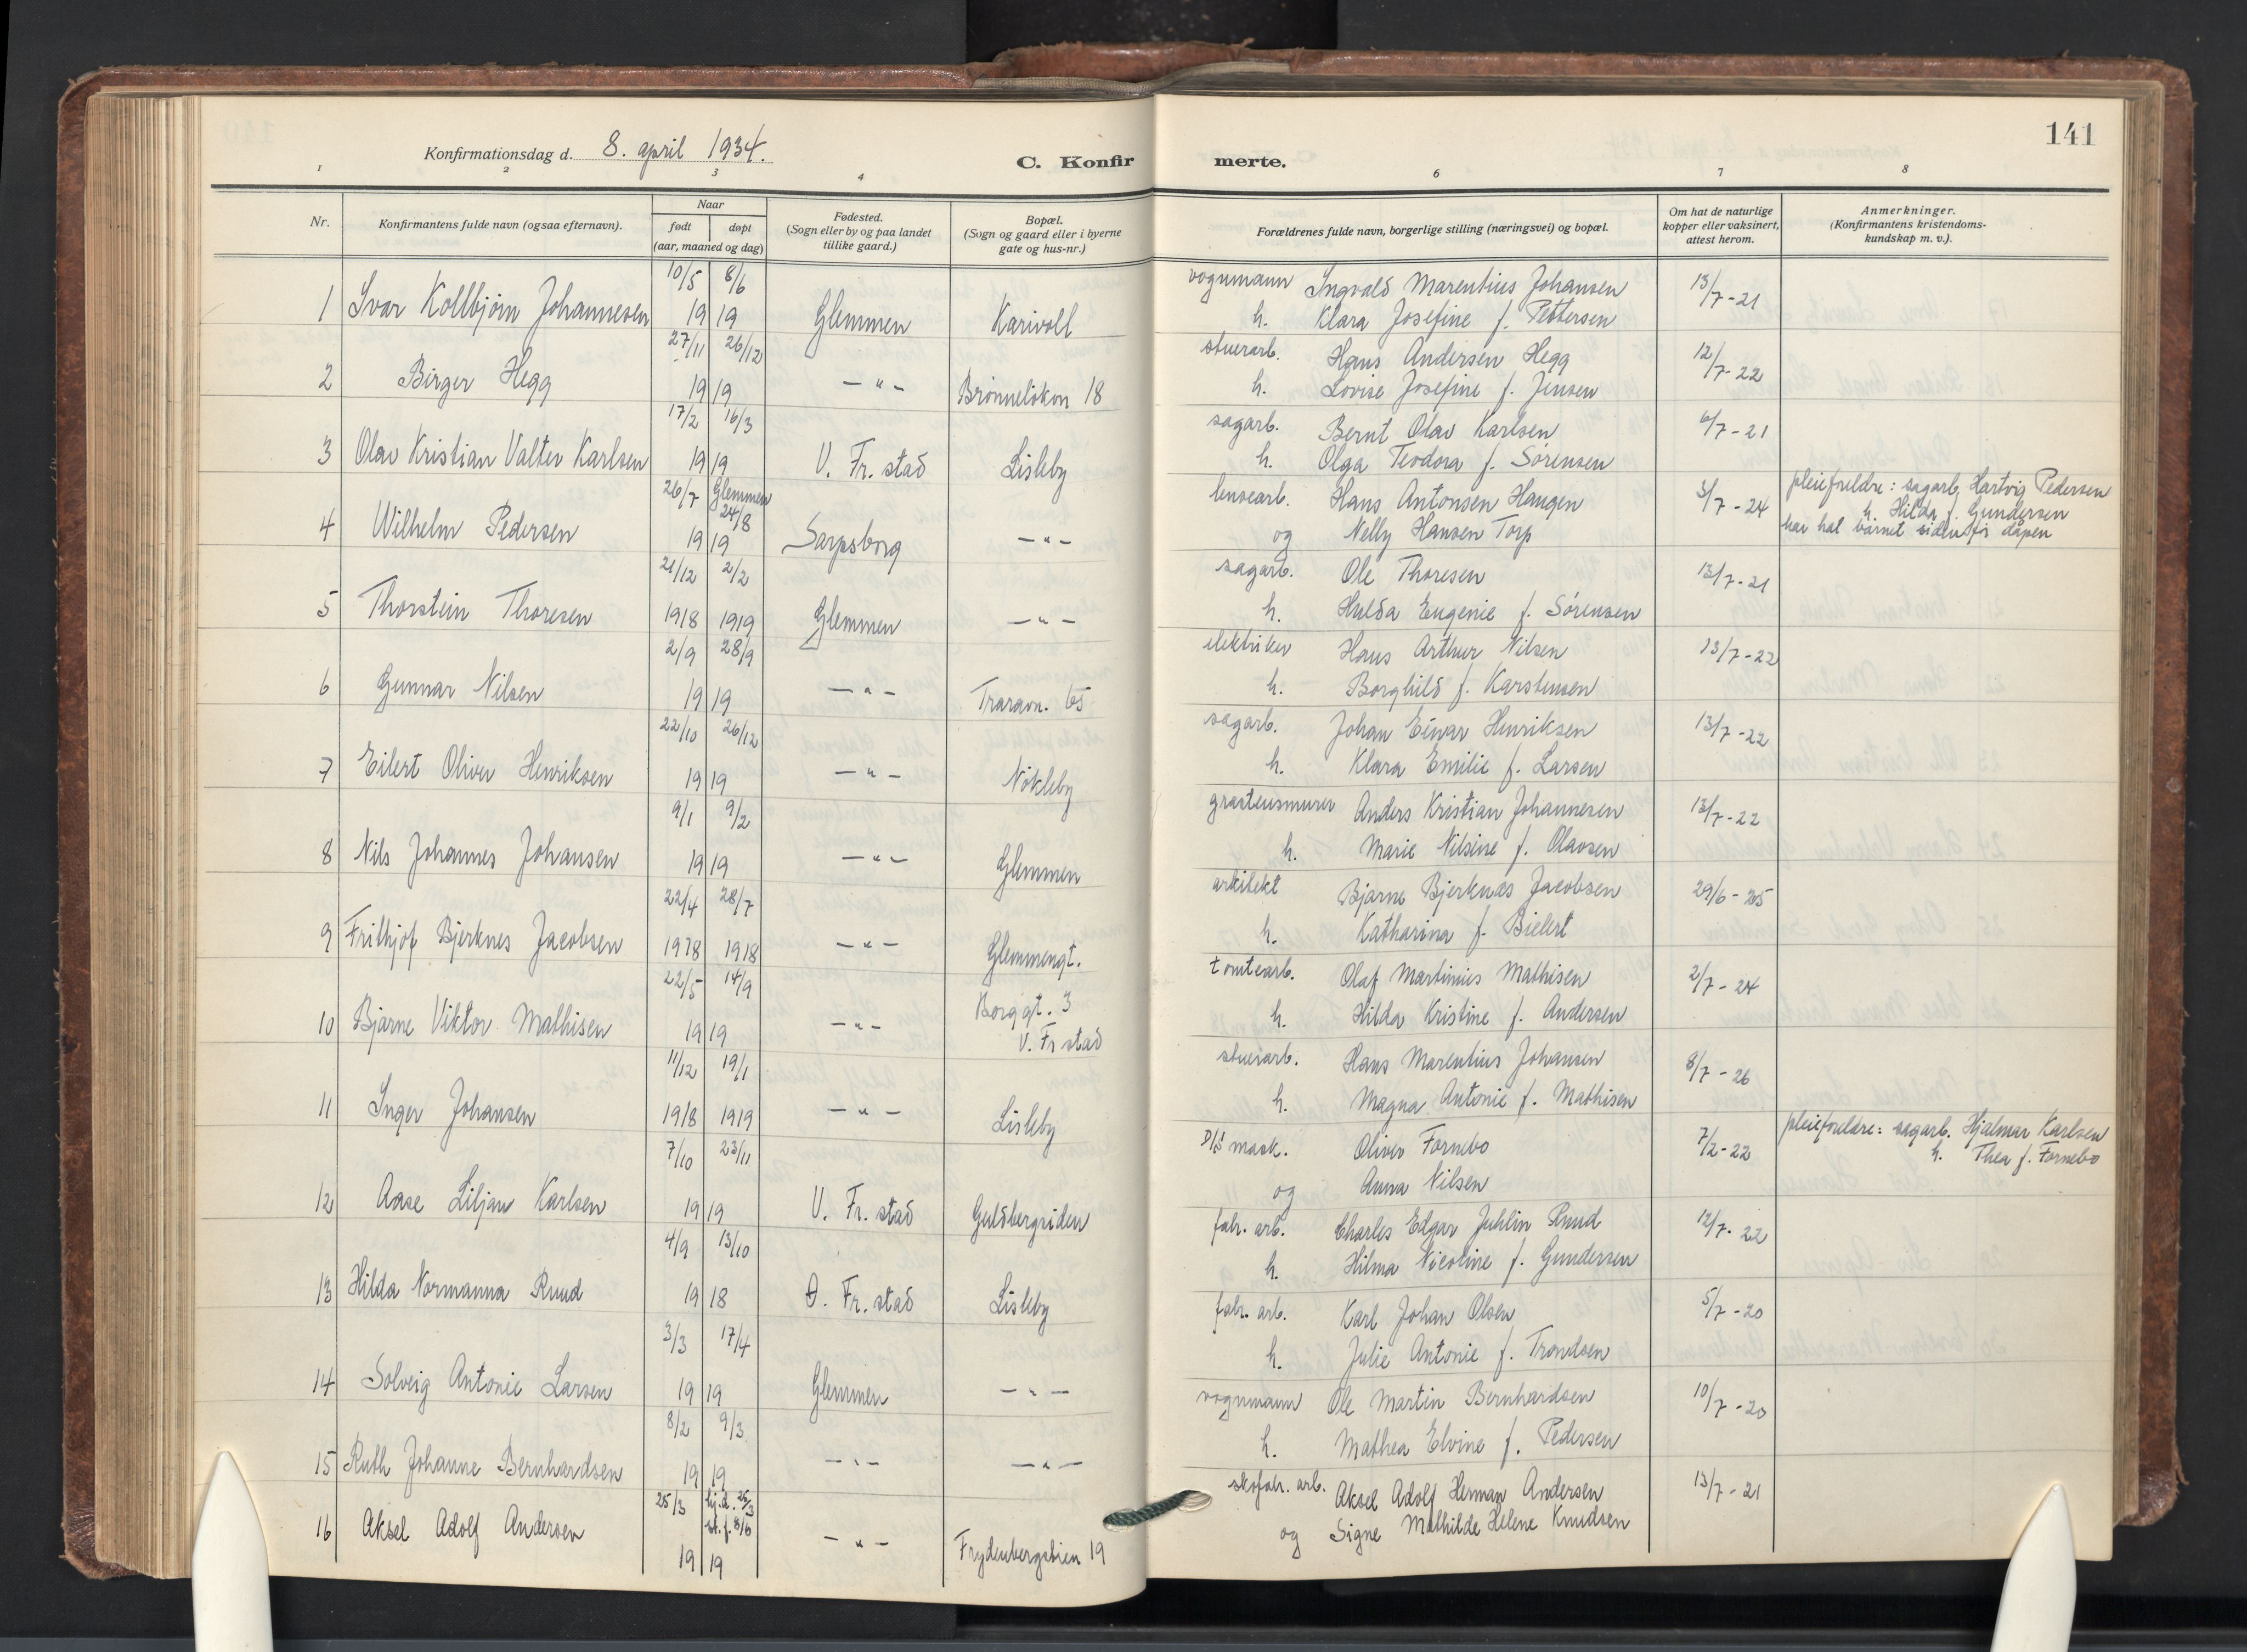 141
Konfirmationsdag d. 8. april 1934.
C. Konfir merte.
1 2 3 4 6 7 8
Nr. Konfirmantens fulde navn (ogsaa efternavn). Naar født døpt (aar, maaned og dag) Fødested. (Sogn eller by og paa landet tillike gaard.) Bopæl. (Sogn og gaard eller i byerne gate og hus-nr.) Forældrenes fulde navn, borgerlige stilling (næringsvei) og bopæl. Om hat de naturlige kopper eller vaksinert, attest herom. Anmerkninger. (Konfirmantens kristendoms- kundskap m. v.).
10/5 8/6 vognmann Ingvald Marentius Johansen 13/7-21
1 Ivar Kollbjørn Johannesen 19 19 Glemmen Karivoll h. Klara Josefine f. Pettersen
27/11 26/12 stuerarb. Hans Andersen Hegg 12/7-22
2 Birger Hegg 19 19 —"— Brønneløkon 18 h. Lovise Josefine f. Jensen
17/2 16/3 sagarb. Bernt Olav Karlsen 6/7-21
3 Olav Kristian Valter Karlsen 19 19 V. Fr.stad Lisleby h. Olga Teodora f. Sørensen
26/7 Glemmen 24/8 lensearb. Hans Antonsen Haugen 3/7-24 pleieforeldre: sagarb. Hartvig Pedersen
h. Hilda f. Gundersen
4 Wilhelm Pedersen 19 19 Sarpsborg —"— og Nelly Hansen Torp har hat barnet siden før dåpen
21/12 2/2 sagarb. Ole Thoresen 13/7-21
5 Thorstein Thoresen 1918 1919 Glemmen —"— h. Hulda Eugenie f. Sørensen
2/9 28/9 elektriker Hans Arthur Nilsen 13/7-22
6 Gunnar Nilsen 19 19 —"— Traravn. 65 h. Borghild f. Karstensen
22/10 26/12 sagarb. Johan Einar Henriksen 13/7-22
7 Eilert Oliver Henriksen 19 19 —"— Nøkleby h. Klara Emilie f. Larsen
9/1 9/2 gråstensmurer Anders Kristian Johannesen 13/7-22
8 Nils Johannes Johansen 19 19 —"— Glemmen h. Marie Nilsine f. Olavsen
22/4 28/7 arkitekt Bjarne Bjerknæs Jacobsen 29/6-25
9 Frithjof Bjerknes Jacobsen 1918 1918 —"— Glemmengt. h. Katharina f. Bielert
22/5 14/9 tomtearb. Olaf Martinius Mathisen 2/7-24
10 Bjarne Viktor Mathisen 19 19 —"— Borggt. 3 V. Fr stad h. Hilda Kristine f. Andersen
11/12 19/1 stuerarb. Hans Marentius Johansen 8/7-26
11 Inger Johansen 1918 1919 —"— Lisleby h. Magna Antonie f. Mathisen
7/10 23/11 D/S mask. Oliver Fornebo 7/2-22 pleieforeldre: sagarb. Hjalmar Karlsen
h. Thea f. Fornebo
12 Aase Liljan Karlsen 19 19 V. Fr. stad Guldbergsiden og Anna Nilsen
4/9 13/10 fabr. arb. Charles Edgar Juhlin Ruud 12/7-22
13 Hilda Normanna Ruud 19 18 Ø. Fr. stad Lisleby h. Hilma Nicoline f. Gundersen
3/3 17/4 fabr. arb. Karl Johan Olsen 5/7-20
14 Solveig Antonie Larsen 19 19 Glemmen —"— h. Julie Antonie f. Trondsen
8/2 9/3 vognmann Ole Martin Bernhardsen 10/7-20
15 Ruth Johanne Bernhardsen 19 19 —"— —"— h. Mathea Elvine f. Pedersen
25/3 hj.d. 25/3 st. f. 8/6 skofabr. arb. Aksel Adolf Herman Andersen 13/7-21
16 Aksel Adolf Andersen 19 19 —"— Frydenbergstien 19 og Signe Mathilde Helene Knudsen